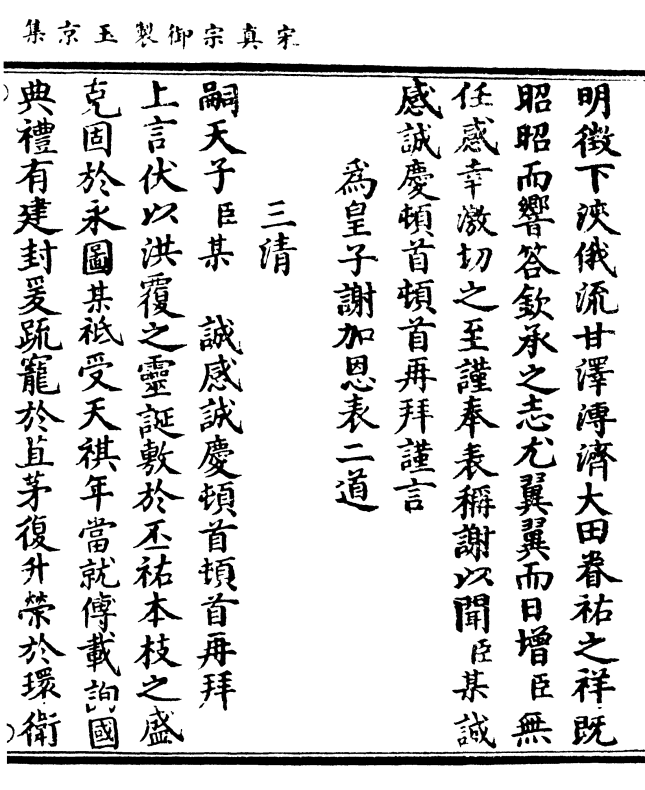 宋真宗御製玉京集
明徴下浹俄流甘澤溥濟大田眷祐之祥既
昭昭而響答欽承之志尤翼翼而日增臣無
任感幸激切之至謹奉表稱謝以聞臣某誠
感誠慶頓首頓首再拜謹言
為皇子謝加恩表二道
三清
嗣天子臣某 誠感誠慶頓首頓首再拜
上言伏以洪覆之靈誕敷於丕祐本枝之盛
克固於永圖某祗受天祺年當就傅載詢國
典禮有建封爰䟽寵於苴茅復升榮於環衛